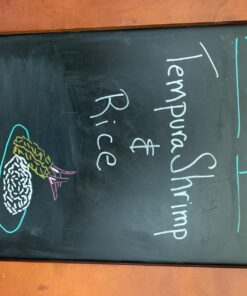 Tempura Shrimp
&
Rice